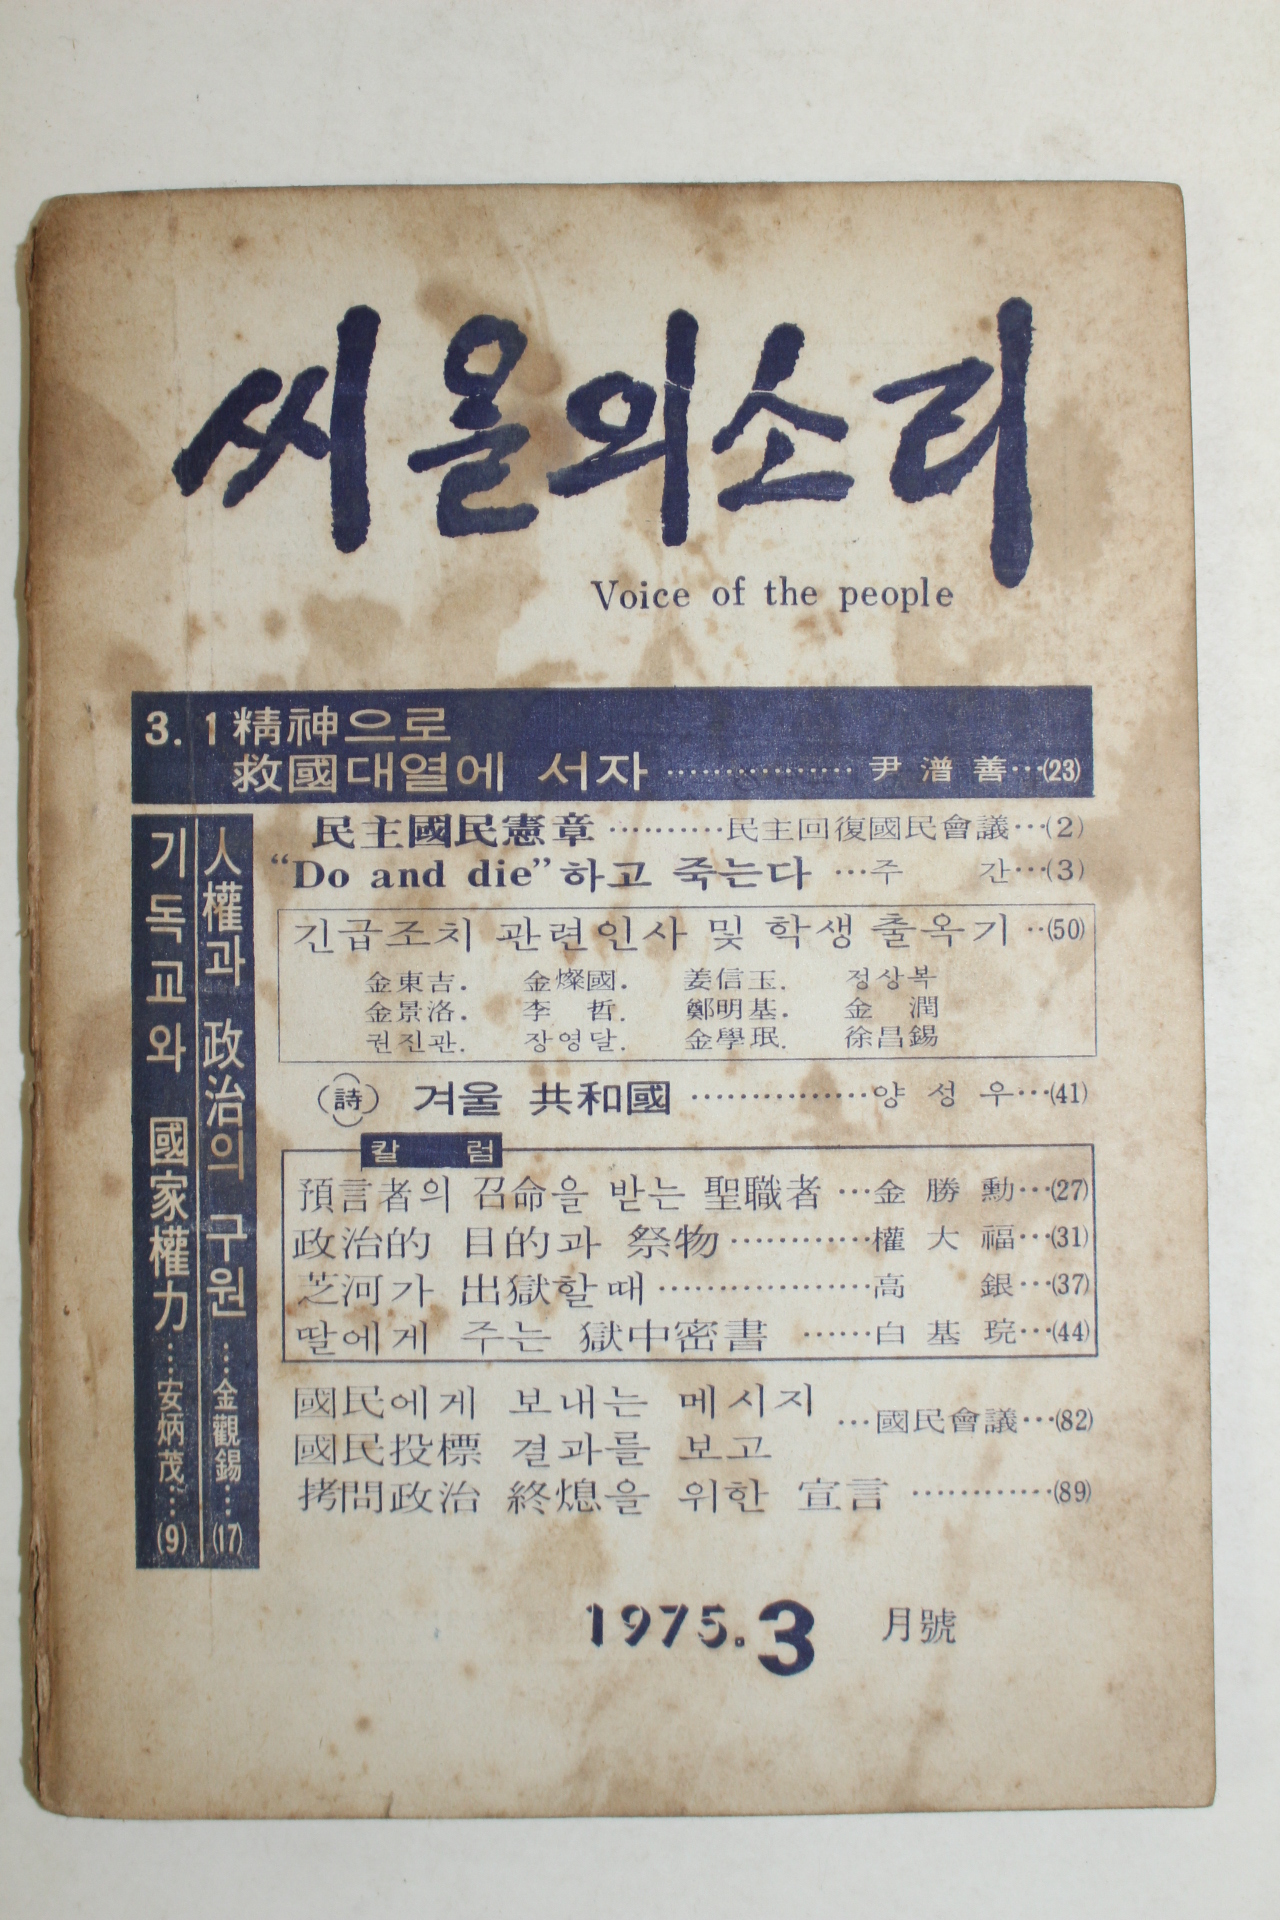 씨올의소리
Voice of the people
3. 1 精神으로
救國대열에 서자 ················ 尹潽善···(23)
기독교와 國家權力·····安炳茂·····(9)
人權과 政治의 구원·····金觀錫···(17)
民主國民憲章 ··········民主回復國民會議···(2)
“Do and die”하고 죽는다 ···주 간···(3)
긴급조치 관련인사 및 학생 출옥기 ··(50)
金東吉. 金燦國. 姜信玉. 정상복
金景洛. 李 哲. 鄭明基. 金 潤
권진관. 장영달. 金學珉. 徐昌錫
(詩) 겨울 共和國 ···············양 성 우···(41)
칼 럼
預言者의 召命을 받는 聖職者 ···金勝勳···(27)
政治的 目的과 祭物············權大福···(31)
芝河가 出獄할때···················高 銀···(37)
딸에게 주는 獄中密書 ······白基琓···(44)
國民에게 보내는 메시지
國民投標 결과를 보고 ···國民會議···(82)
拷問政治 終熄을 위한 宣言 ············(89)
1975.3 月號